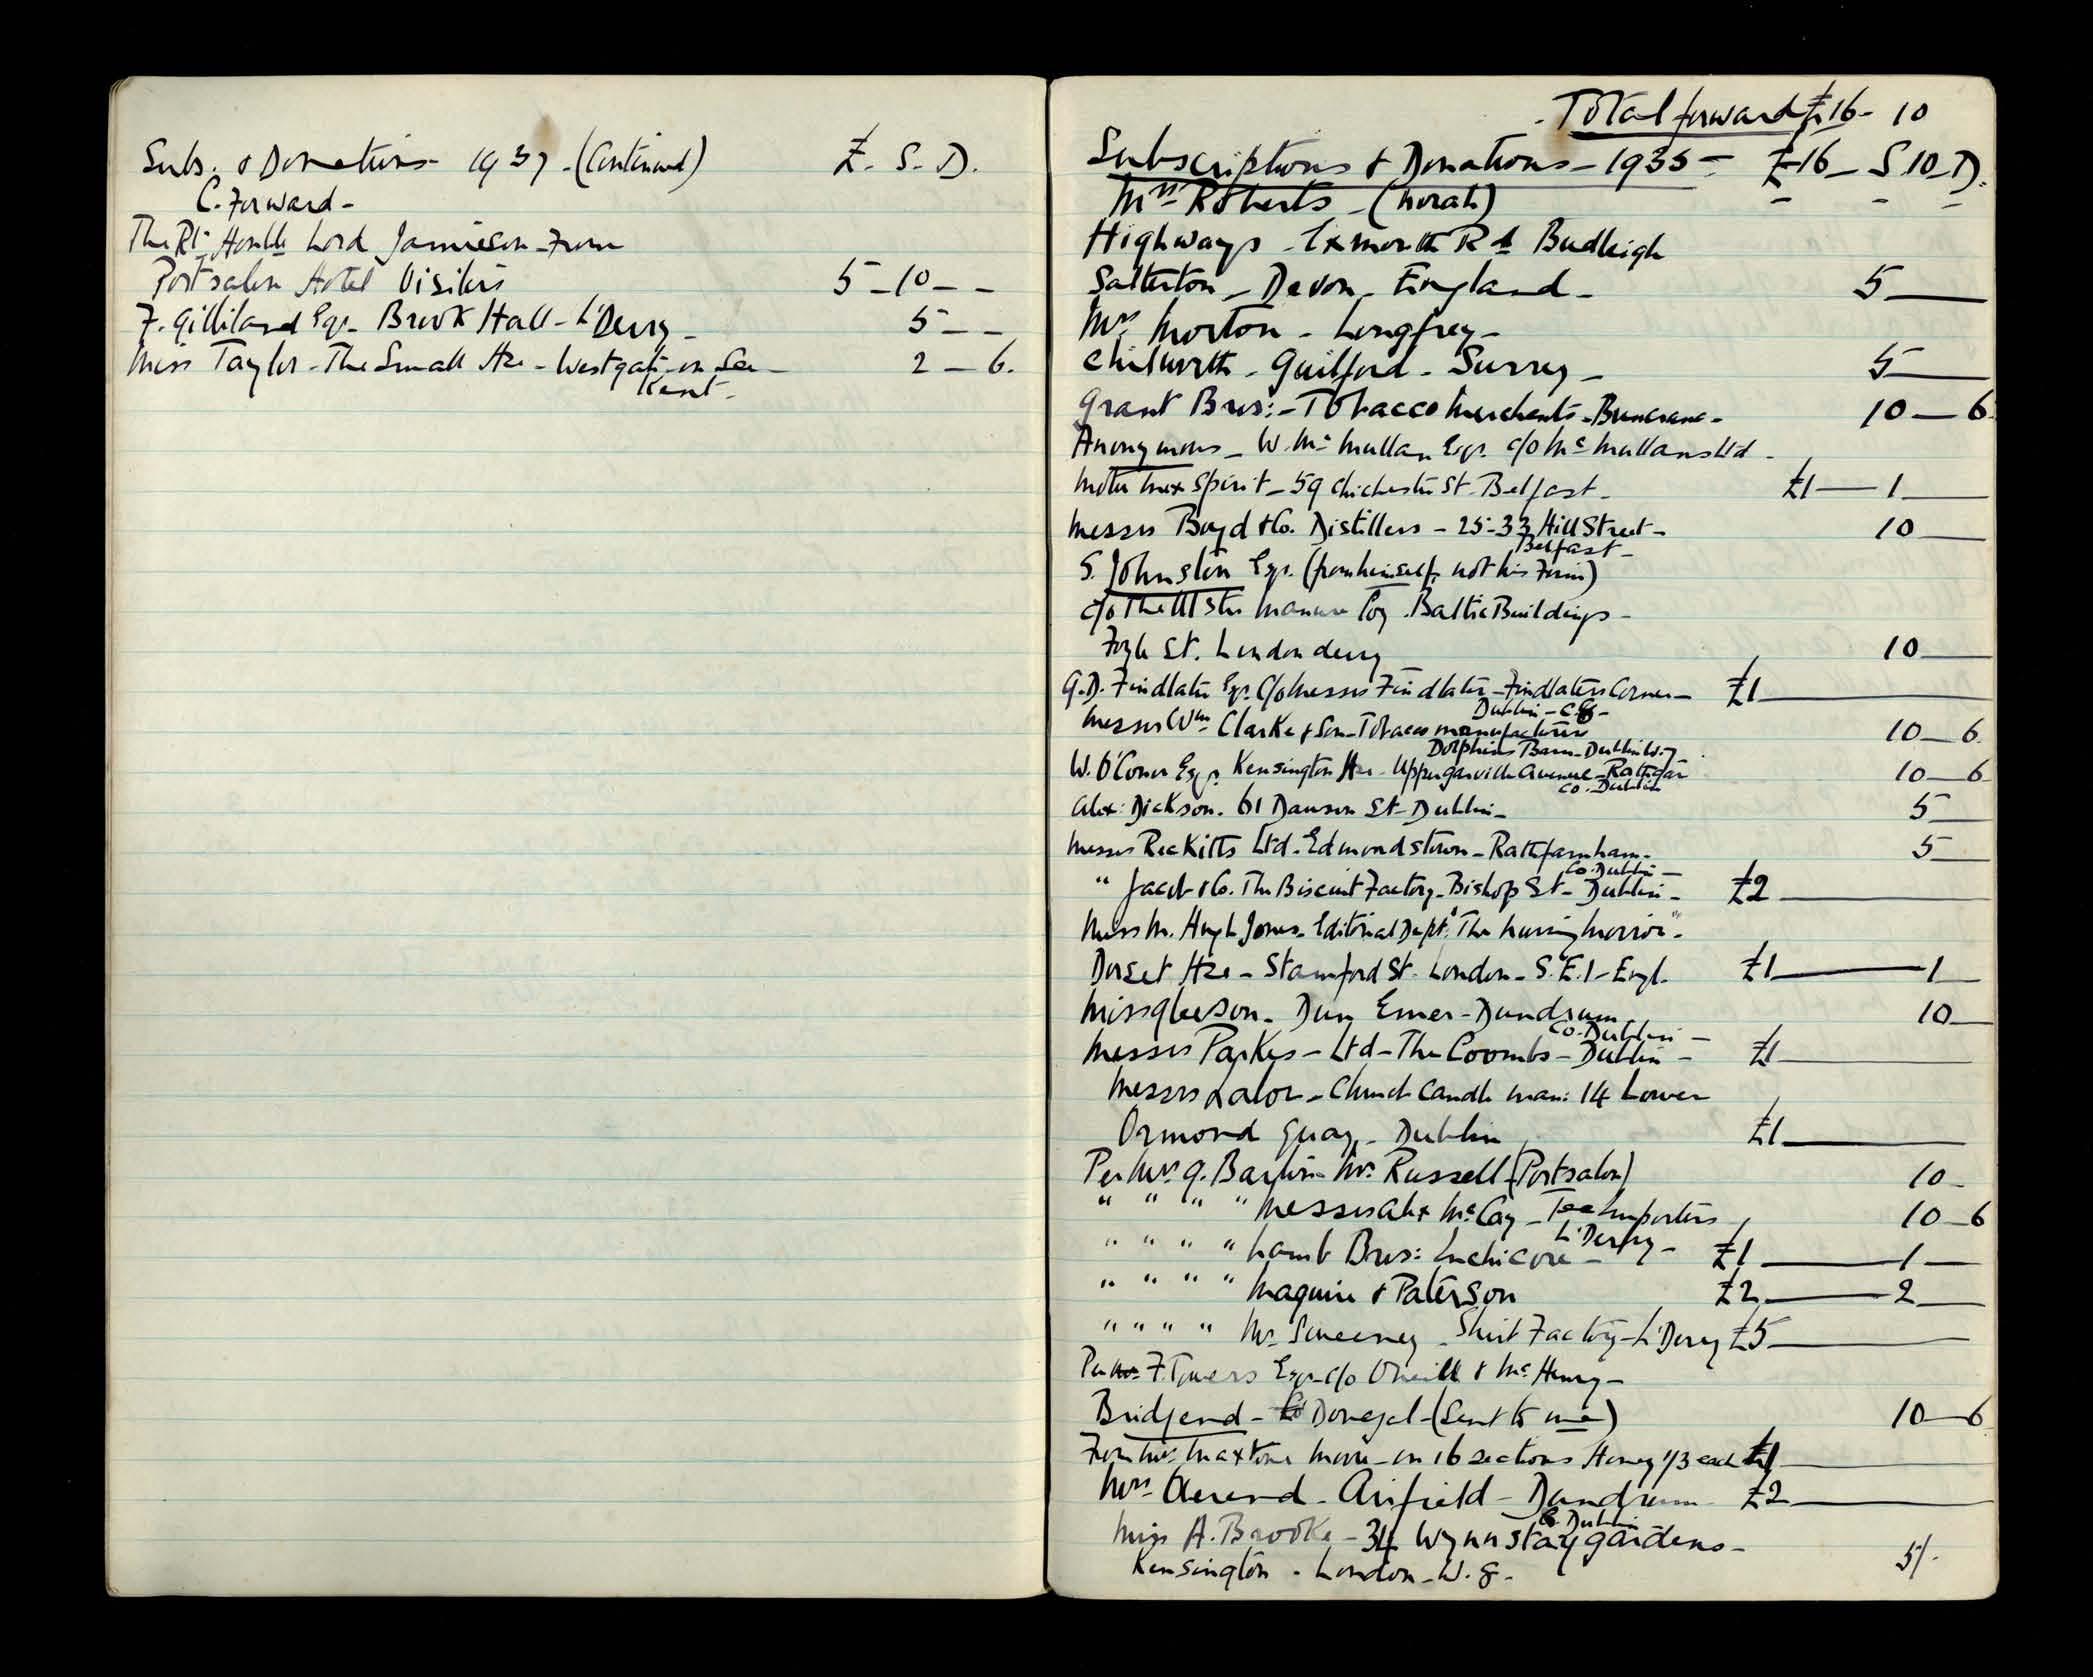 Subs. & Donations - 1937 - (Continued) £ - S - D.
C. Forward -
The Rt. Honble Lord Jamieson - From
Portsalon Hotel Visitors 5 - 10 - -
F. Gilliland Esqr. Brook Hall - L'Derry - 5 - -
Miss Taylor - The Small Hse - Westgate on Sea - 2 - 6.
Kent -
- Total forward £16 - 10
Subscriptions & Donations - 1935 - £16 - S 10 - D.
Mrs Roberts - (Norah) - - -
Highways - Exmouth Rd Budleigh
Salterton - Devon - England - 5 -
Mrs Morton - Longfrey -
Chilworth - Guilford - Surrey - 5 -
Grant Bros: - Tobacco Merchants - Buncrana - 10 - 6.
Anonymous - W. Mc Mullan Esqr. c/o Mc Mullans Ltd -
Motor Spirit - 59 Chichester St - Belfast - £1 - 1 -
Messrs Boyd & Co. Distillers - 25-33 Hill Street - 10 -
Belfast -
S. Johnston Esqr. (from himself, not his Firm)
c/o The Ulster Manure Coy. Baltic Buildings -
Foyle St. Londonderry 10 -
G.D. Findlater Esqr. c/o Messrs Findlater - Findlaters Corner - £1 -
Dublin -
Messrs Wm Clarke & Son - Tobacco manufacturers 10 - 6.
Dolphins Barn - Dublin
W. O'Conor Esqr. Kensington Hse - Uppr garville Avenue - Rathgar 10 - 6
Co. Dublin
Alex: Dickson. 61 Dawson St - Dublin - 5 -
Messrs Reckitts Ltd. Edmondstown - Rathfarnham - 5 -
Co. Dublin -
" Jacob & Co. The Biscuit Factory - Bishop St - Dublin - £2 -
Miss M. Hugh Jones - Editorial Dept. "The Nursing Mirror" -
Dorset Hse - Stamford St. London - S.E.1 - Engl. £1 - 1 -
Miss Gleeson - Dun Emer - Dundrum 10 -
Co. Dublin -
Messrs Parkes - Ltd - The Coombs - Dublin - £1 -
Messrs Lalor - Church Candle man: 14 Lower
Ormond Quay - Dublin £1 -
Per Mrs. G. Barton - Mr. Russell (Portsalon) 10 -
" " " " Messrs Alex Mc Cay - Tea Importers 10 - 6
L'Derry -
" " " " Lamb Bros: Inchicore - £1 - 1 -
" " " " Maguire & Paterson £2 - 2 -
" " " " Mr. Sweeney - Shirt Factory - L'Derry £5 -
Per F. Towers Esqr. c/o O'neill & Mc Henry -
Bridgend - Donegal - (Sent to me) 10 - 6
From Mrs. Maxtone Moore - on 16 sections Honey 1/3 each £1 -
Mrs. Overend - Airfield - Dundrum - £2 -
Co. Dublin
Miss A. Brooke - 34 Wynnstay gardens -
Kensington - London - W. 8 - 5/-